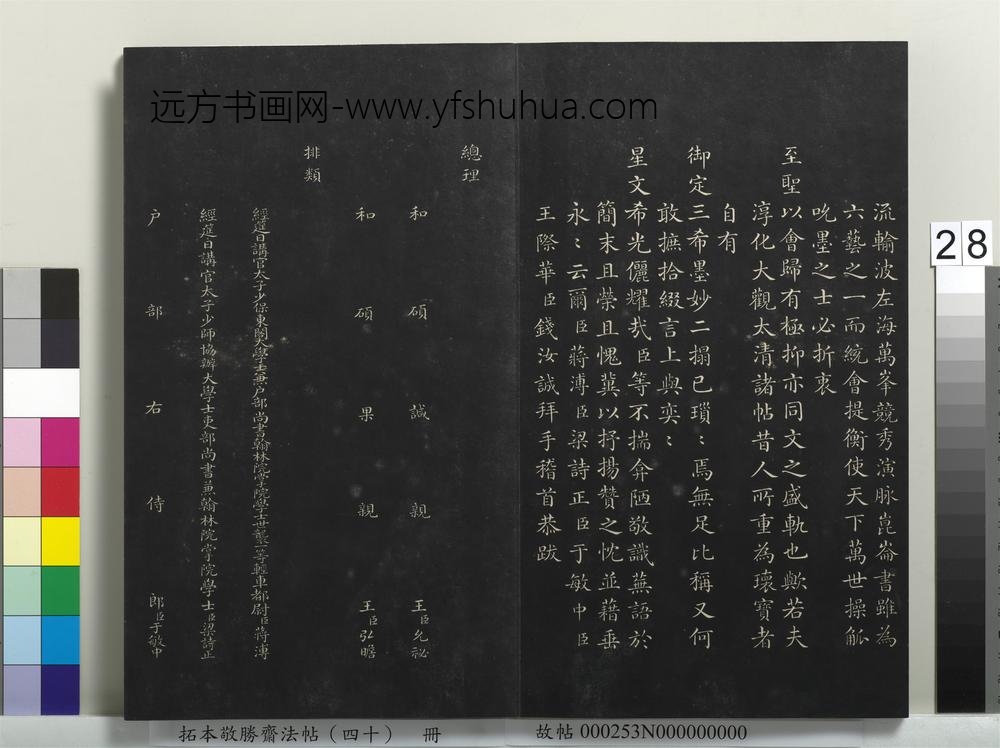 远方书画网-www.yfshuhua.com
流輸波左海萬峯競秀演脉崑崙書雖為
六藝之一而統會提衡使天下萬世操觚
吮墨之士必折衷
至聖以會歸有極抑亦同文之盛軌也歟若夫
淳化大觀太清諸帖昔人所重為瓌寶者
自有
御定三希墨妙二搨已瑣〻焉無足比稱又何
敢撫拾綴言上與奕〻
星文希光儷耀哉臣等不揣弇陋敬識蕪語於
簡末且榮且愧冀以抒揚贊之忱並藉垂
永〻云爾臣蔣溥臣梁詩正臣于敏中臣
王際華臣錢汝誠拜手稽首恭跋
總理
和碩諴親王臣允祕
和碩果親王臣弘瞻
排類
經筵日講官太子少保東閣大學士兼戶部尚書翰林院掌院學士世襲一等輕車都尉臣蔣溥
經筵日講官太子少師協辦大學士吏部尚書兼翰林院掌院學士臣梁詩正
戶部右侍郎臣于敏中
28
拓本敬勝齋法帖（四十） 冊
故帖 000253N000000000